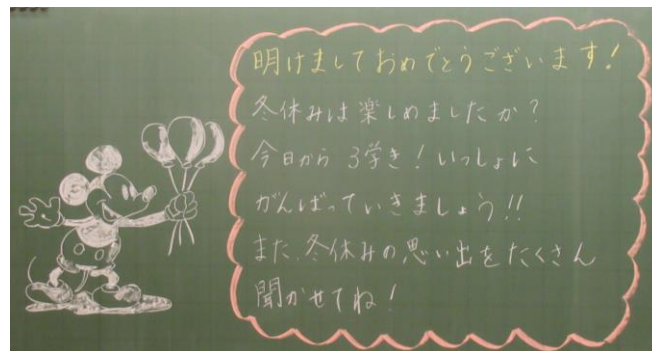 明けましておめでとうございます!
冬休みは楽しめましたか?
今日から3学き!いっしょに
がんばっていきましょう!!
また、冬休みの思い出をたくさん
聞かせてね!